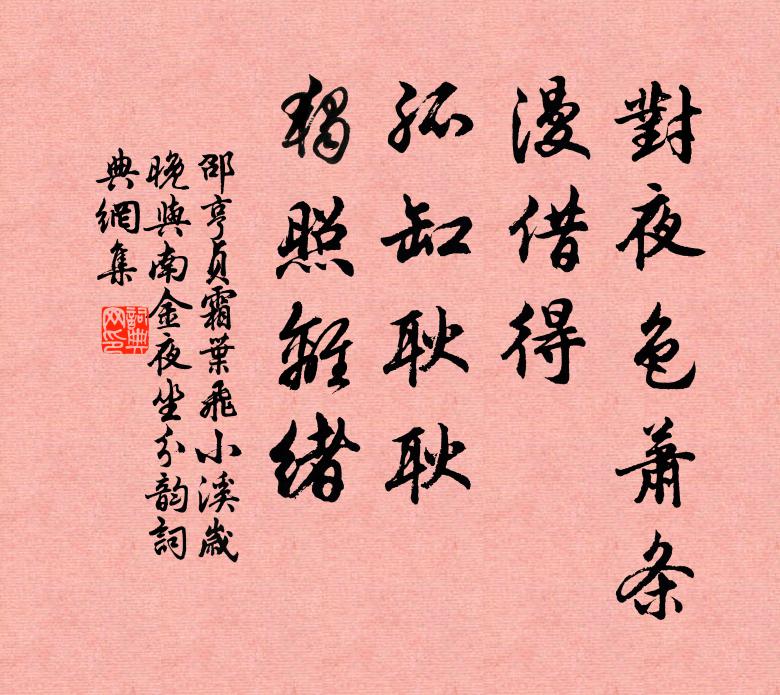 對夜色蕭条
漫借得
孤缸耿耿
獨照離緒
邵亨貞霜葉飛小溪歲
晚與南金夜坐分韵詞
典網集
詞典
网印